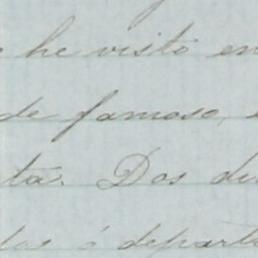 he visto en
de famoso,
ta. Dos di
las ó departa